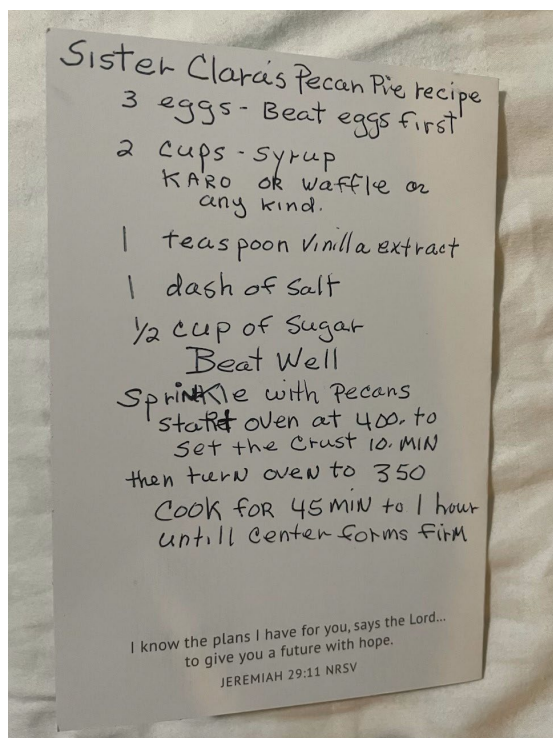 Sister Clara's Pecan Pie recipe
3 eggs - Beat eggs first
2 cups - syrup
KARO or waffle or
any kind.
1 teaspoon vinilla extract
1 dash of salt
1/2 cup of sugar
Beat Well
Sprinkle with Pecans
start oven at 400. to
set the crust 10. MIN
then turn oven to 350
Cook for 45 MIN to 1 hour
untill center forms firm
I know the plans I have for you, says the Lord...
to give you a future with hope.
JEREMIAH 29:11 NRSV